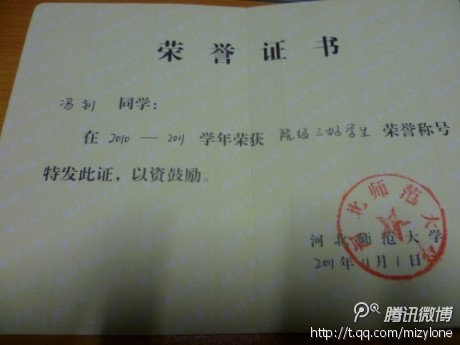 荣誉证书
同学：
在 2010 — 2011 学年荣获 院级三好学生 荣誉称号
特发此证，以资鼓励。
河北师范大学
河北师范大学
2011年11月1日
腾讯微博
http://t.qq.com/mizylone